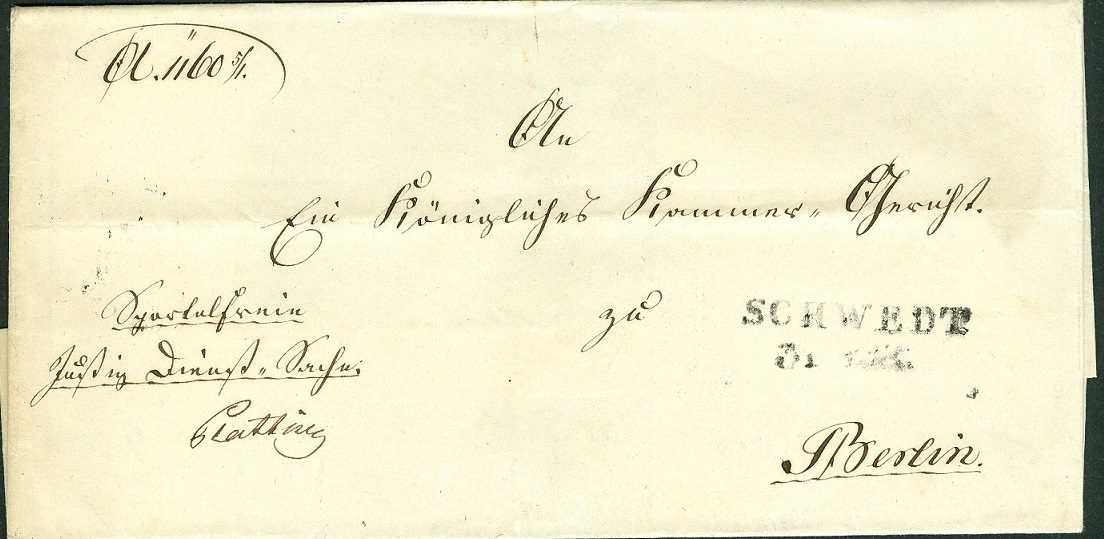 A. 1160 5/1.
An
Ein Königliches Kammer-Gericht.
zu
SCHWEDT
31
Sportelfreie
Justiz Dienst-Sache.
Berlin.